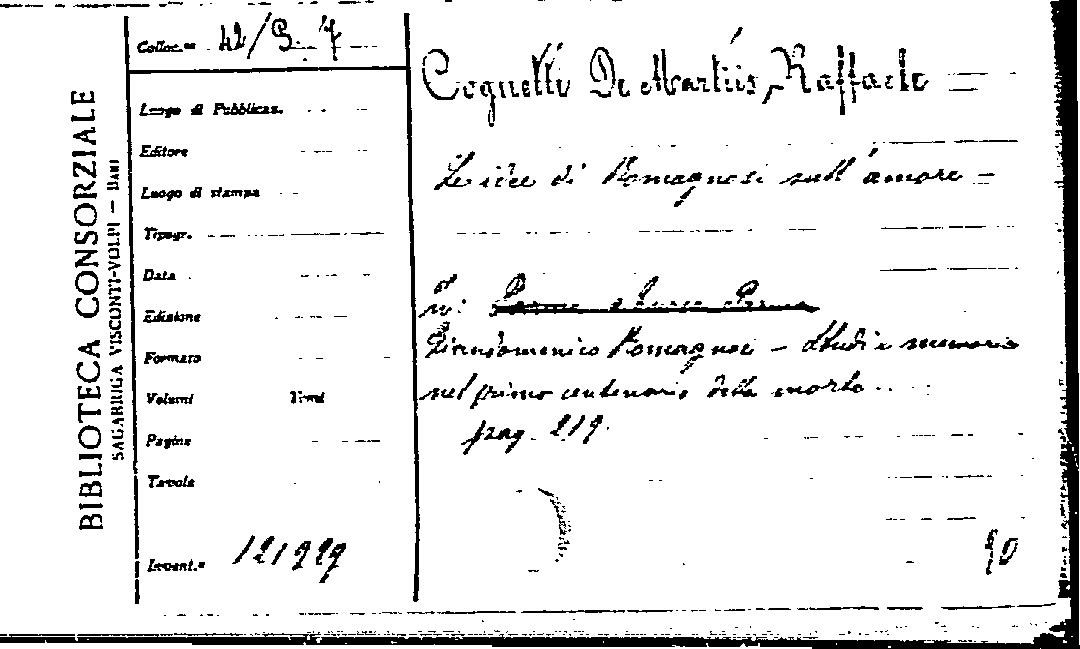 BIBLIOTECA CONSORZIALE
SAGARRIGA VISCONTI-VOLPI — BARI
Colloc.ne 42/S. 7
Luogo di Pubblicaz.
Editore
Luogo di stampa
Tipogr.
Data
Edizione
Formato
Volumi Tomi
Pagine
Tavole
Invent.e 121229
Cognetti De Martiis, Raffaele
Le idee di Romagnosi sull'amore
In:
Giandomenico Romagnosi - Studi e memorie
nel primo centenario della morte..
pag. 219.
90